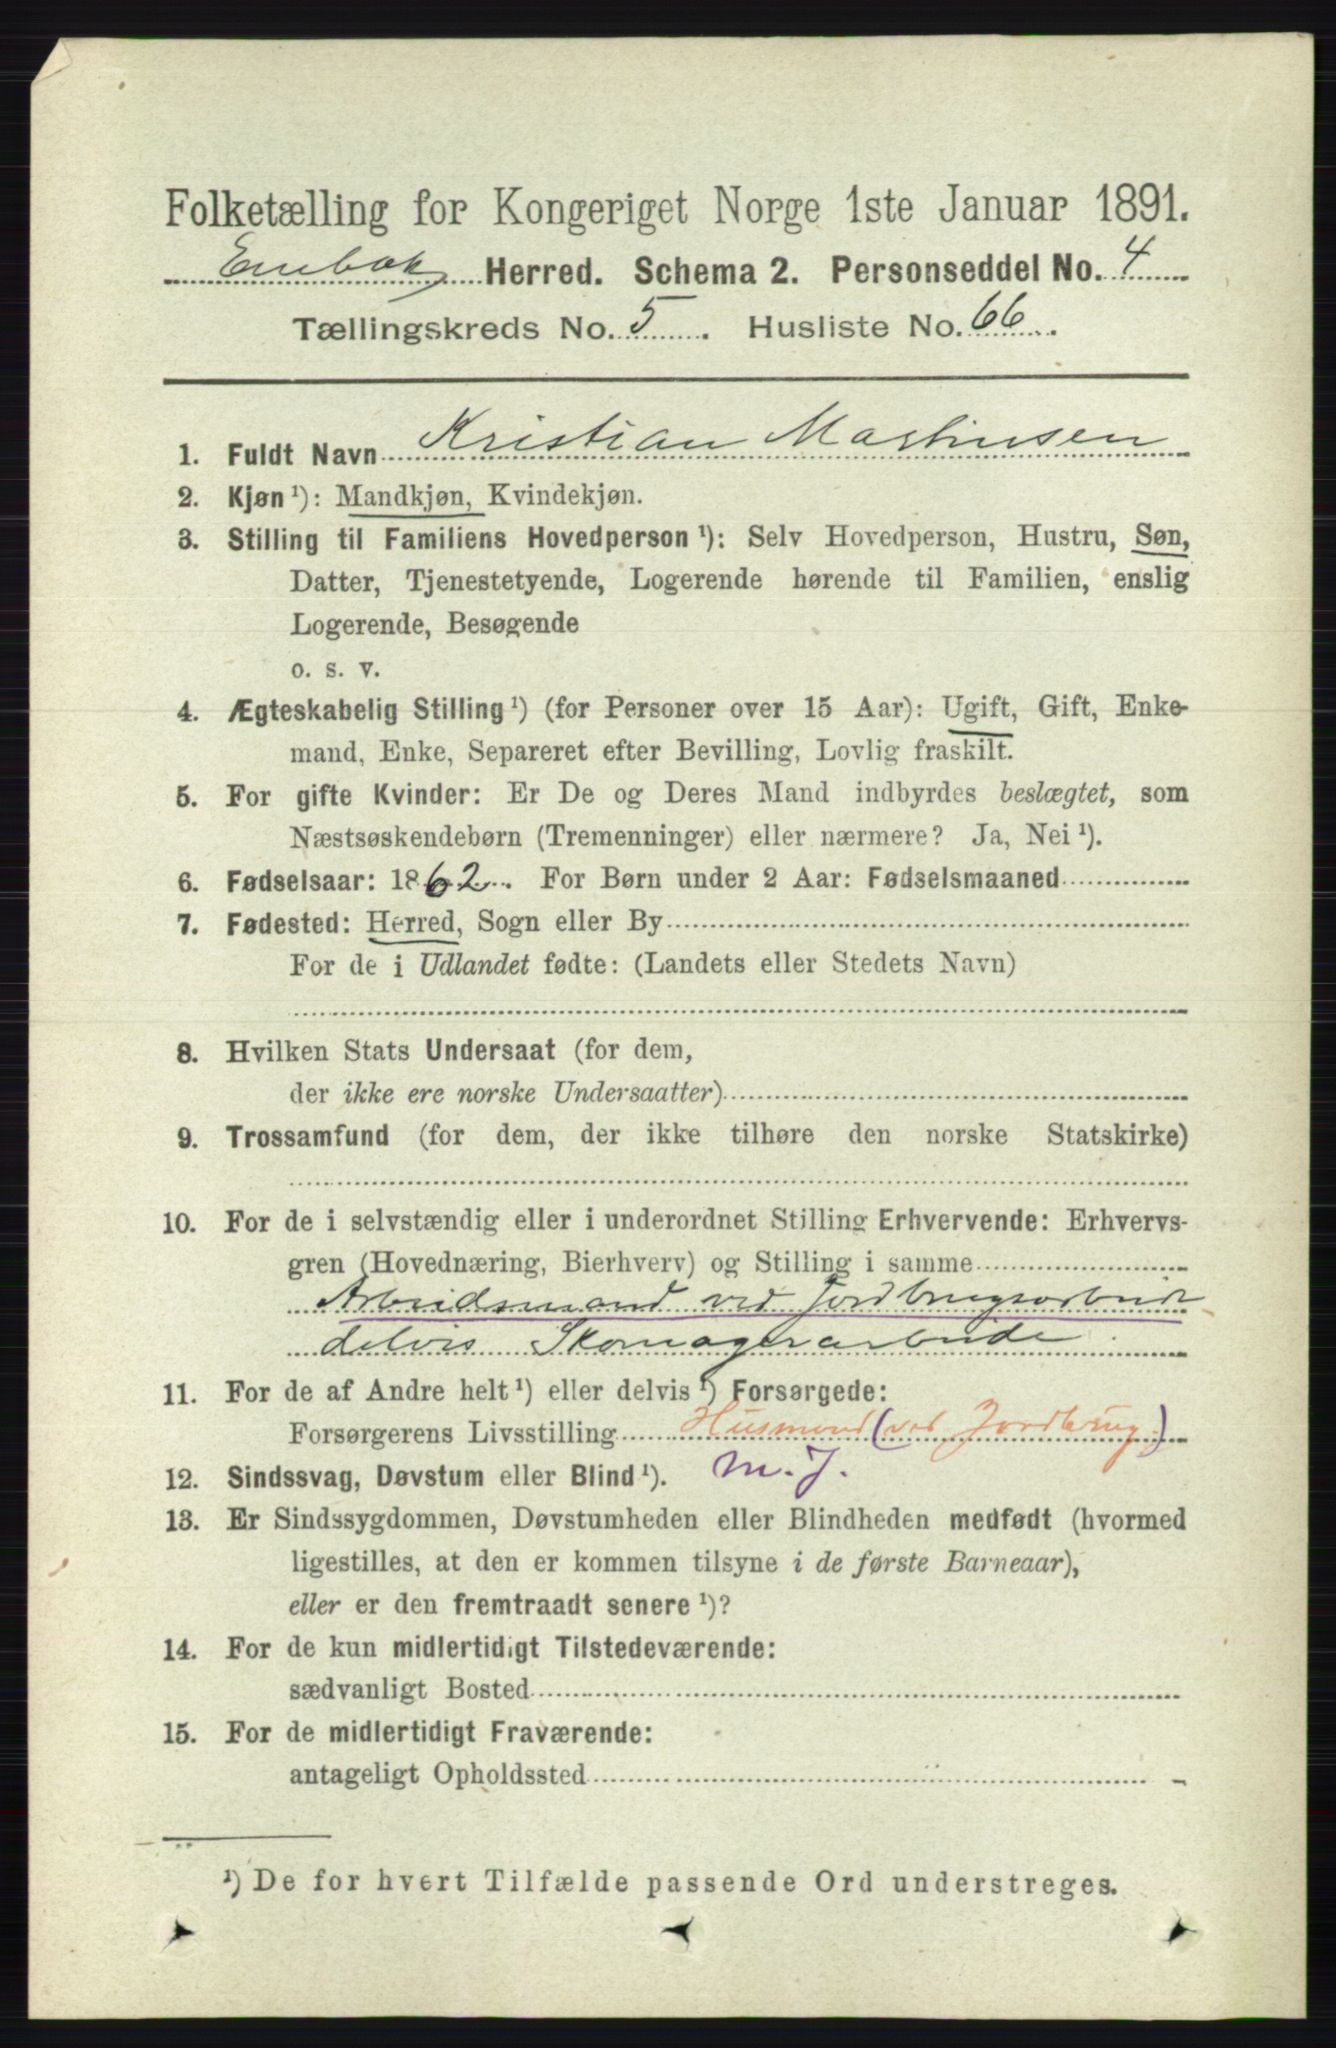 Folketælling for Kongeriget Norge 1ste Januar 1891.
Enebak Herred. Schema 2. Personseddel No. 4
Tællingskreds No. 5. Husliste No. 66.
1. Fuldt Navn Kristian Mathisen
2. Kjøn ¹): Mandkjøn, Kvindekjøn.
3. Stilling til Familiens Hovedperson ¹): Selv Hovedperson, Hustru, Søn,
Datter, Tjenestetyende, Logerende hørende til Familien, enslig
Logerende, Besøgende
o. s. v.
4. Ægteskabelig Stilling ¹) (for Personer over 15 Aar): Ugift, Gift, Enke-
mand, Enke, Separeret efter Bevilling, Lovlig fraskilt.
5. For gifte Kvinder: Er De og Deres Mand indbyrdes beslægtet, som
Næstsøskendebørn (Tremenninger) eller nærmere? Ja, Nei ¹).
6. Fødselsaar: 1862. For Børn under 2 Aar: Fødselsmaaned
7. Fødested: Herred, Sogn eller By
For de i Udlandet fødte: (Landets eller Stedets Navn)
8. Hvilken Stats Undersaat (for dem,
der ikke ere norske Undersaatter)
9. Trossamfund (for dem, der ikke tilhøre den norske Statskirke)
10. For de i selvstændig eller i underordnet Stilling Erhvervende: Erhvervs-
gren (Hovednæring, Bierhverv) og Stilling i samme
Arbeidsmand ved Jordbrugsarbeide
delvis Skomagerarbeide.
11. For de af Andre helt ¹) eller delvis ¹) Forsørgede:
Forsørgerens Livsstilling Husmand (ved Jordbrug)
12. Sindssvag, Døvstum eller Blind ¹). m. J.
13. Er Sindssygdommen, Døvstumheden eller Blindheden medfødt (hvormed
ligestilles, at den er kommen tilsyne i de første Barneaar),
eller er den fremtraadt senere ¹)?
14. For de kun midlertidigt Tilstedeværende:
sædvanligt Bosted
15. For de midlertidigt Fraværende:
antageligt Opholdssted
¹) De for hvert Tilfælde passende Ord understreges.